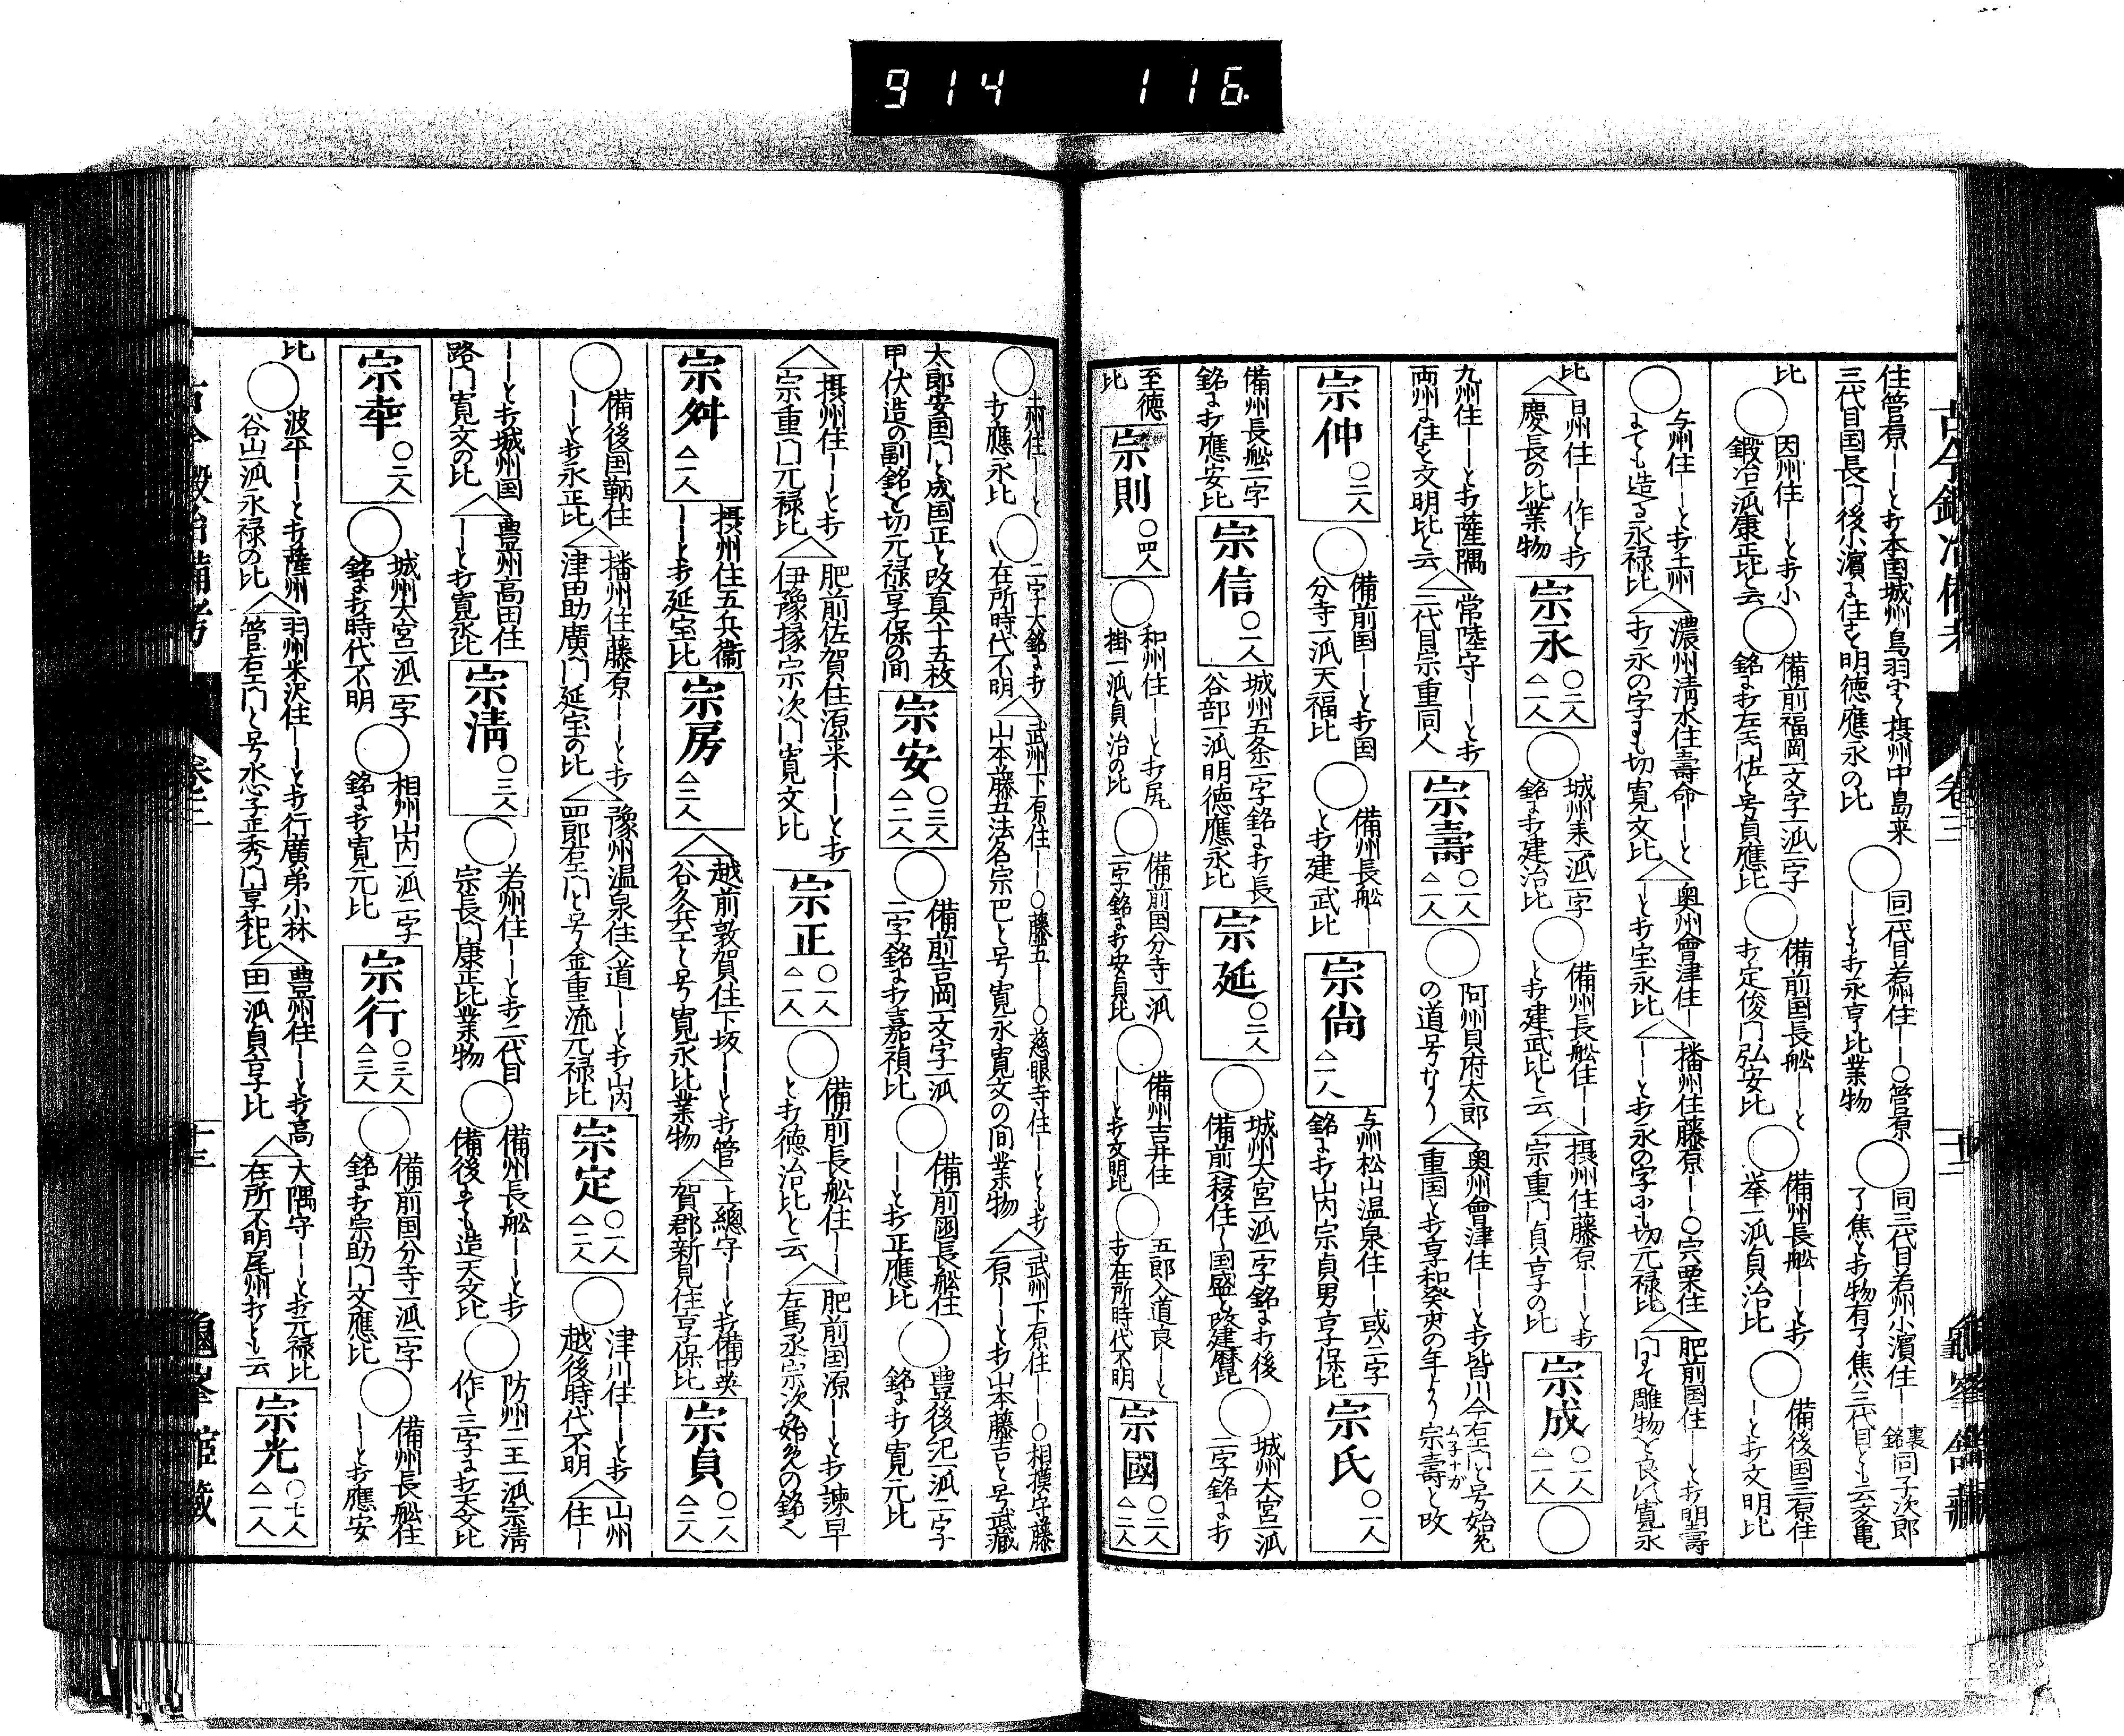 914 116
古今鍛冶備考 卷三 亀峯館藏
住菅原ーーと打本国城州鳥羽ゟ摂州中島来
三代目国長門後小濱に住すと明徳應永の比
○同二代目若州住ーー○菅原
ーーとも打永享比業物
○同三代目若州小濱住ー裏銘同子次郎
了焦と打物有了焦ハ三代目とも云文亀
比
○因州住ーーと打小
鍛冶一派康正比と云
○備前福岡一文字一派二字
銘に打左エ門佐と号貞應比
○備前国長舩ーーと
打定俊門弘安比
○備州長舩ーーと打
挙一派貞治比
○備後国三原住ー
ーと打文明比
○与州住ーーと打土州
にても造る永禄比
△濃州清水住壽命ーーと
打永の字にも切寛文比
△奥州會津住ー
ーと打宝永比
△播州住藤原ーー○宍粟住
ーーと打永の字にも切元禄比
△肥前国住ーーと打明壽
門にて雕物と良以寛永
比
△日州住ーー作と打
慶長の比業物
宗永 ○二人 △二人
○城州来一派二字
銘に打建治比
○備州長舩住ーー
と打建武比と云
△摂州住藤原ーーと打
宗重門貞享の比
宗成 ○一人 △一人
○
九州住ーーと打薩隅
両州に住す文明比と云
△常陸守ーーと打
二代目宗重同人
宗壽 ○一人 △一人
○阿州貝府太郎
の道号なり
△奥州會津住ーーと打皆川今右エ門と号始兔
重国と打享和癸亥の年より宗壽と改
宗仲 ○二人
○備前国ーーと打国
分寺一派天福比
○備州長舩ー
と打建武比
宗尚 △一人
与州松山温泉住ーー或ハ二字
銘に打山内宗貞男享保比
宗氏 ○一人
備州長舩二字
銘に打應安比
宗信 ○一人
城州五条二字銘に打長
谷部一派明徳應永比
宗延 ○二人
○城州大宮一派二字銘に打後
備前移住し国盛と改建暦比
○城州大宮一派
二字銘に打
至徳
比
宗則 ○四人
○和州住ーーと打尻
掛一派貞治の比
○備前国分寺一派
二字銘に打安貞比
○備州吉井住
ーーと打文明比
○五郎入道良ーと
打在所時代不明
宗國 ○二人 △二人
○土州住ーーと
打應永比
○二字大銘に打
在所時代不明
△武州下原住ーー○藤五ーー○慈眼寺住ーーとも打
山本藤五法名宗巴と号寛永寛文の间業物
△武州下原住ーー○相摸守藤
原ーーと打山本藤吉と号武藏
太郎安国門と成国正と改真十五枚
甲伏造の副銘と切元禄享保の间
宗安 ○三人 △二人
○備前吉岡一文字一派
二字銘に打嘉禎比
○備前國長舩住
ーーと打正應比
○豊後紀一派二字
銘に打寛元比
△摂州住ーーと打
宗重門元禄比
△肥前佐賀住源来ーーと打
伊豫掾宗次門寛文比
宗正 ○一人 △一人
○備前長舩住ーー
と打徳治比と云
△肥前国源ーーと打諫早
左馬丞宗次始兔の銘也
宗舛 △一人
摂州住五兵衞
ーーと打延宝比
宗房 △二人
△越前敦賀住下坂ーーと打管
谷久兵エと号寛永比業物
△上總守ーーと打備中英
賀郡新見住享保比
宗貞 ○一人 △二人
○備後国鞆住
ーーと打永正比
△播州住藤原ーーと打
津田助廣門延宝の比
△豫州温泉住入道ーーと打山内
四郎右エ門と号金重流元禄比
宗定 ○一人 △二人
○津川住ーーと打
越後時代不明
△山州
住ー
ーーと打城州国
路門寛文の比
△豊州高田住
ーーと打寛永比
宗清 ○三人
○若州住ーーと打二代目
宗長門康正比業物
○備州長舩ーーと打
備後にても造天文比
○防州二王一派宗清
作と三字に打天文比
宗幸 ○二人
○城州大宮一派二字
銘に打時代不明
○相州山内一派二字
銘に打寛元比
宗行 ○三人 △三人
○備前国分寺一派二字
銘に打宗助門文應比
○備州長舩住
ーーと打應安
比
○波平ーーと打薩州
谷山一派永禄の比
△羽州米沢住ーーと打行廣弟小林
管右エ門と号水心子正秀門享和比
△豊州住ーーと打高
田一派貞享比
△大隅守ーーと打元禄比
在所不明尾州打とも云
宗光 ○七人 △一人
古今鍛冶備考 卷三 十三 亀峯館藏